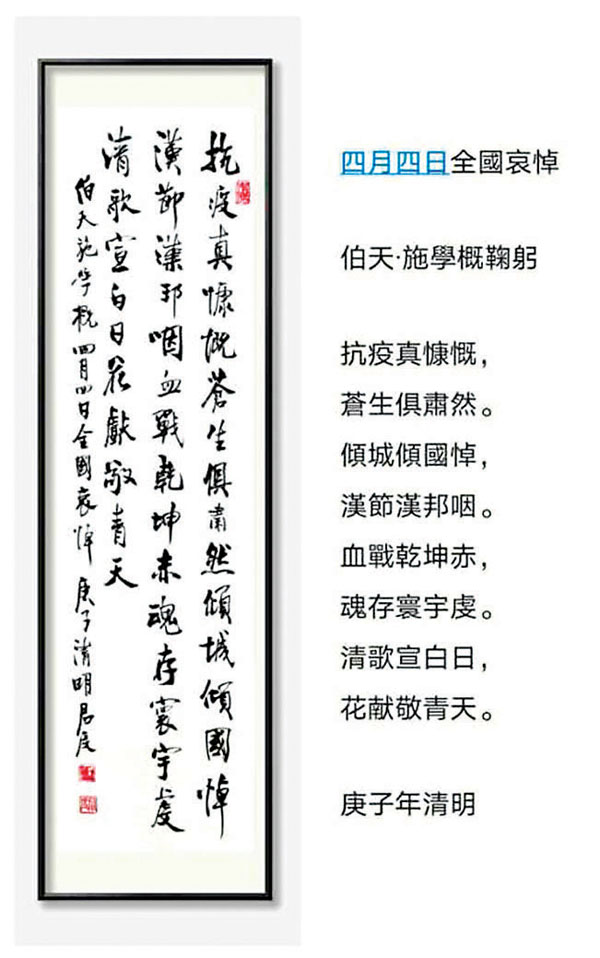 抗疫真慷慨蒼生俱肅然傾城傾國悼
漢節漢邦咽血戰乾坤赤魂存寰宇虔
清歌宣白日花獻敬青天
伯天施學概四月四日全國哀悼 庚子清明君度
四月四日全國哀悼
伯天·施學概鞠躬
抗疫真慷慨，
蒼生俱肅然。
傾城傾國悼，
漢節漢邦咽。
血戰乾坤赤，
魂存寰宇虔。
清歌宣白日，
花献敬青天。
庚子年清明